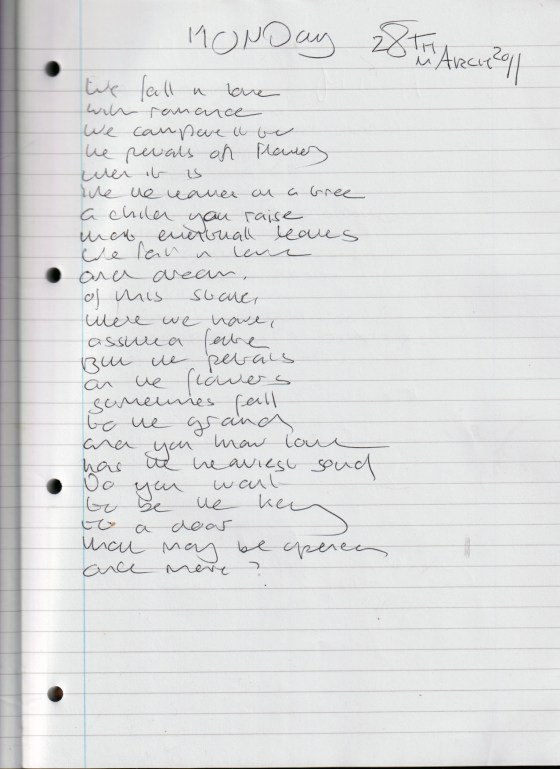 MONDay 28TH MARCH 2011
We fall n love
with romance
We compare it to
the petals of flowers
when it is
like the leaves on a tree
a child you raise
that eventuall leaves
We fall n love
and dream,
of this state,
where we have,
assumed fate
But the petals
on the flowers
sometimes fall
to the ground
and you know love
has the heaviest sound
Do you want
to be the key
to a door
that may be opened
once more?